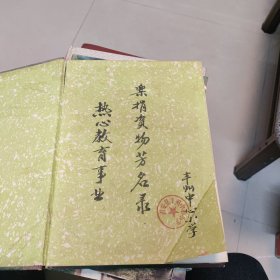 乐捐资物芳名录
热心教育事业
丰州中心小学